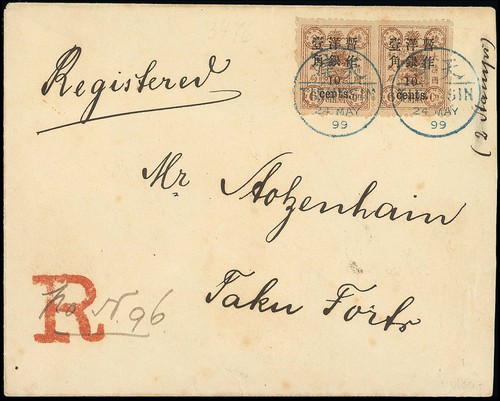 Registered
暫作洋銀壹角
10
cents.
暫作洋銀壹角
10
cents.
TIENTSIN
24 MAY
99
24 MAY
99
(2 Stamps)
Mr Aotzenhain
Taku Forts
R
No N. 96